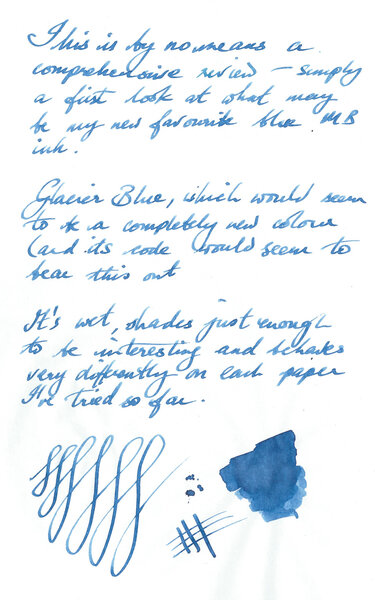 This is by no means a
comprehensive review – simply
a first look at what may
be my new favourite blue MB
ink.
Glacier Blue, which would seem
to be a completely new colour
(and its code would seem to
bear this out
It's wet, shades just enough
to be interesting and behaves
very differently on each paper
I've tried so far.